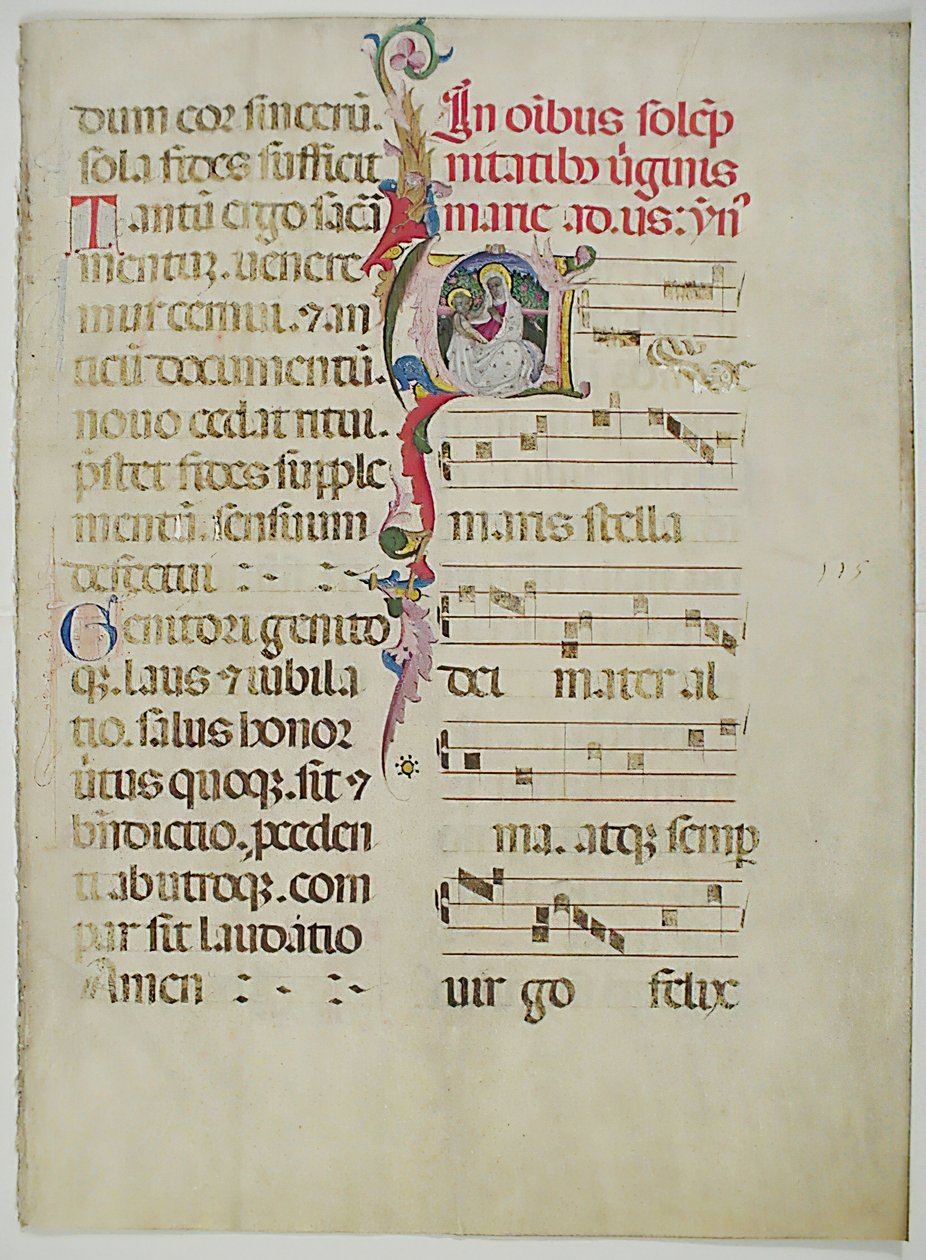 dum cor sinceru̅.
sola fides sufficit
Tantu̅ ergo sac̅ra
mentuꝝ. uenere
mur cernui. ⁊ an
ticu̅ documentu̅.
nouo cedat ritui.
p̅stet fides supple
mentu̅. sensuum
defectui
Genitori genito
qꝫ. laus ⁊ iubila
tio. salus honor
uirtus quoqꝫ. sit ⁊
bn̅dictio. p̱ceden
ti ab utroqꝫ. com
par sit laudatio
Amen
In oi̅bus sole̅p
nitatibꝫ uirginis
marie ad. us: yn̅
maris stella
dei mater al
ma. atqꝫ semꝑ
uir go felix
115